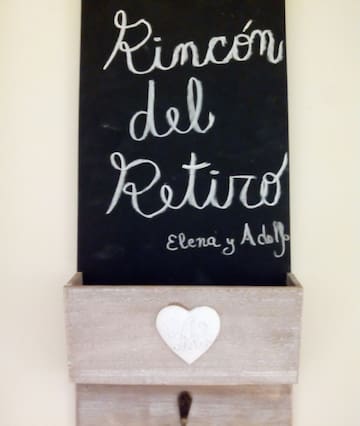 Rincón
del
Retiró
Elena y Adolfo